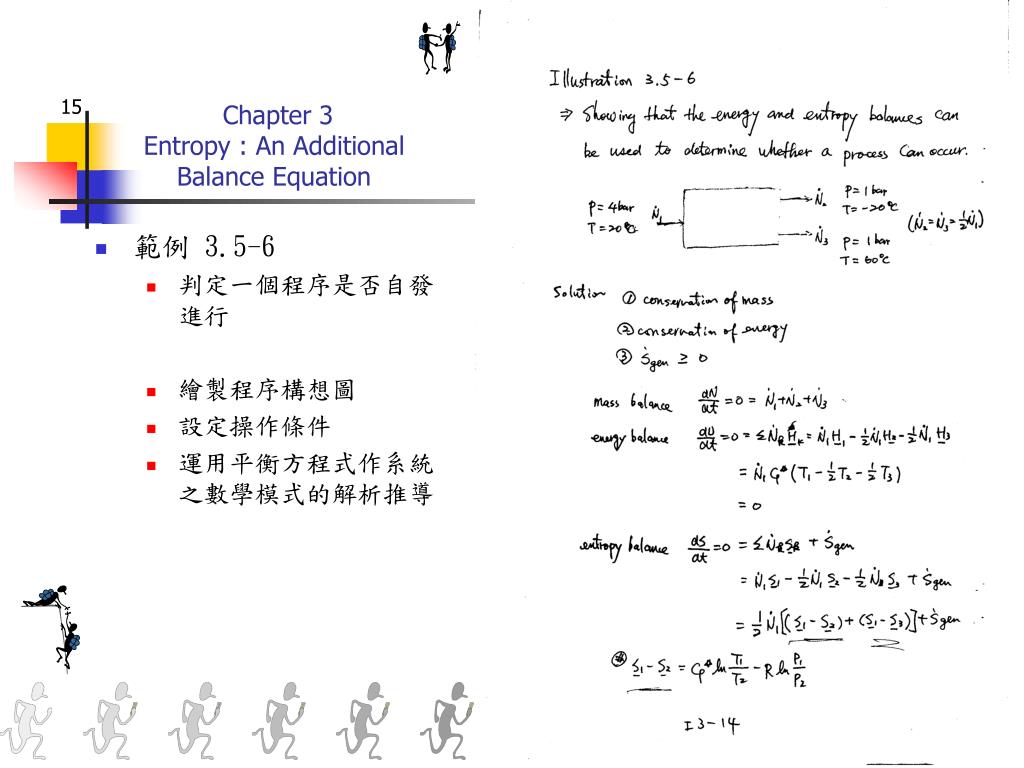 15
Chapter 3
Entropy : An Additional
Balance Equation
範例 3.5-6
判定一個程序是否自發
進行
繪製程序構想圖
設定操作條件
運用平衡方程式作系統
之數學模式的解析推導
Illustration 3.5-6
⇒ Showing that the energy and entropy balances can
be used to determine whether a process can occur.
P=4bar
T=20℃
Ṅ₁
Ṅ₂
P=1bar
T=-20℃
(Ṅ₂=Ṅ₃=½Ṅ₁)
Ṅ₃
P=1bar
T=60℃
Solution ① conservation of mass
② conservatin of energy
③ Ṡgen ≥ 0
mass balance dN/dt = 0 = Ṅ₁+Ṅ₂+Ṅ₃
energy balance dU/dt = 0 = ΣṄₖHₖ = Ṅ₁H₁ - ½Ṅ₁H₂ - ½Ṅ₁H₃
= Ṅ₁Cp*(T₁ - ½T₂ - ½T₃)
= 0
entropy balance dS/dt = 0 = ΣṄₖSₖ + Ṡgen
= Ṅ₁S₁ - ½Ṅ₁S₂ - ½Ṅ₁S₃ + Ṡgen
= ½Ṅ₁[(S₁-S₂)+(S₁-S₃)]+Ṡgen
S₁-S₂ = Cp* ln T₁/T₂ - R ln P₁/P₂
I3-14